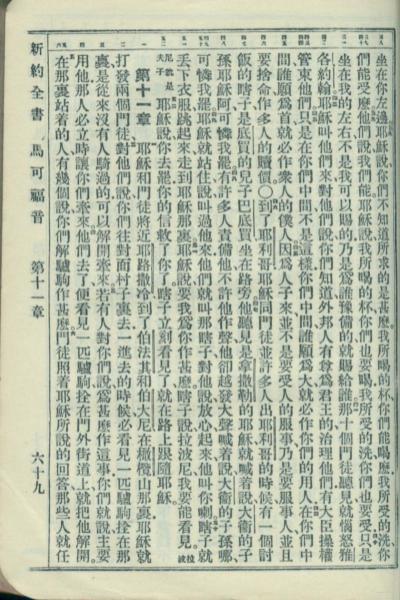 坐在你左邊耶穌說你們不知道所求的是甚麽我所喝的杯你們能喝麽我所受的洗你
們能受麽他們說我們能耶穌說我所喝的杯你們也要喝我所受的洗你們也要受只是
坐在我的左右不是我可以賜的乃是爲誰豫備的就賜給誰那十個門徒聽見就惱怒雅
各約翰耶穌叫他們來對他們說你們知道外邦人有尊爲君王的治理他們有大臣操權
管束他們只是在你們中間不是這樣你們中間誰願爲大就必作你們的用人在你們中
間誰願爲首就必作衆人的僕人因爲人子來並不是要受人的服事乃是要服事人並且
要捨命作多人的贖價〇到了耶利哥耶穌同門徒並許多人出耶利哥的時候有一個討
飯的瞎子是底買的兒子巴底買坐在路旁他聽見是拿撒勒的耶穌就喊着說大衛的子
孫耶穌阿可憐我罷有許多人責備他不許他作聲他卻越發大聲喊着說大衛的子孫哪
可憐我罷耶穌就站住說叫過他來他們就叫那瞎子對他說放心起來他叫你喇瞎子就
丟下衣服跳起來走到耶穌那裏耶穌說要我爲你作甚麽瞎子說拉波尼我要能看見拉波
尼就是夫子耶穌說你去罷你的信救了你了瞎子立刻看見了就在路上跟隨耶穌
第十一章 耶穌和門徒將近耶路撒冷到了伯法其和伯大尼在橄欖山那裏耶穌就
打發兩個門徒對他們說你們往對面村子裏去一進去的時候必看見一匹驢駒拴在那
裏是從來沒有人騎過的可以解開牽來若有人對你們說爲甚麽作這事你們就說主要
用他那人必立時讓你們牽來他們去了便看見一匹驢駒拴在門外街道上就把他解開
在那裏站着的人有幾個說你們解驢駒作甚麽門徒照着耶穌所說的回答那些人就任
新約全書 馬可福音 第十一章 六十九